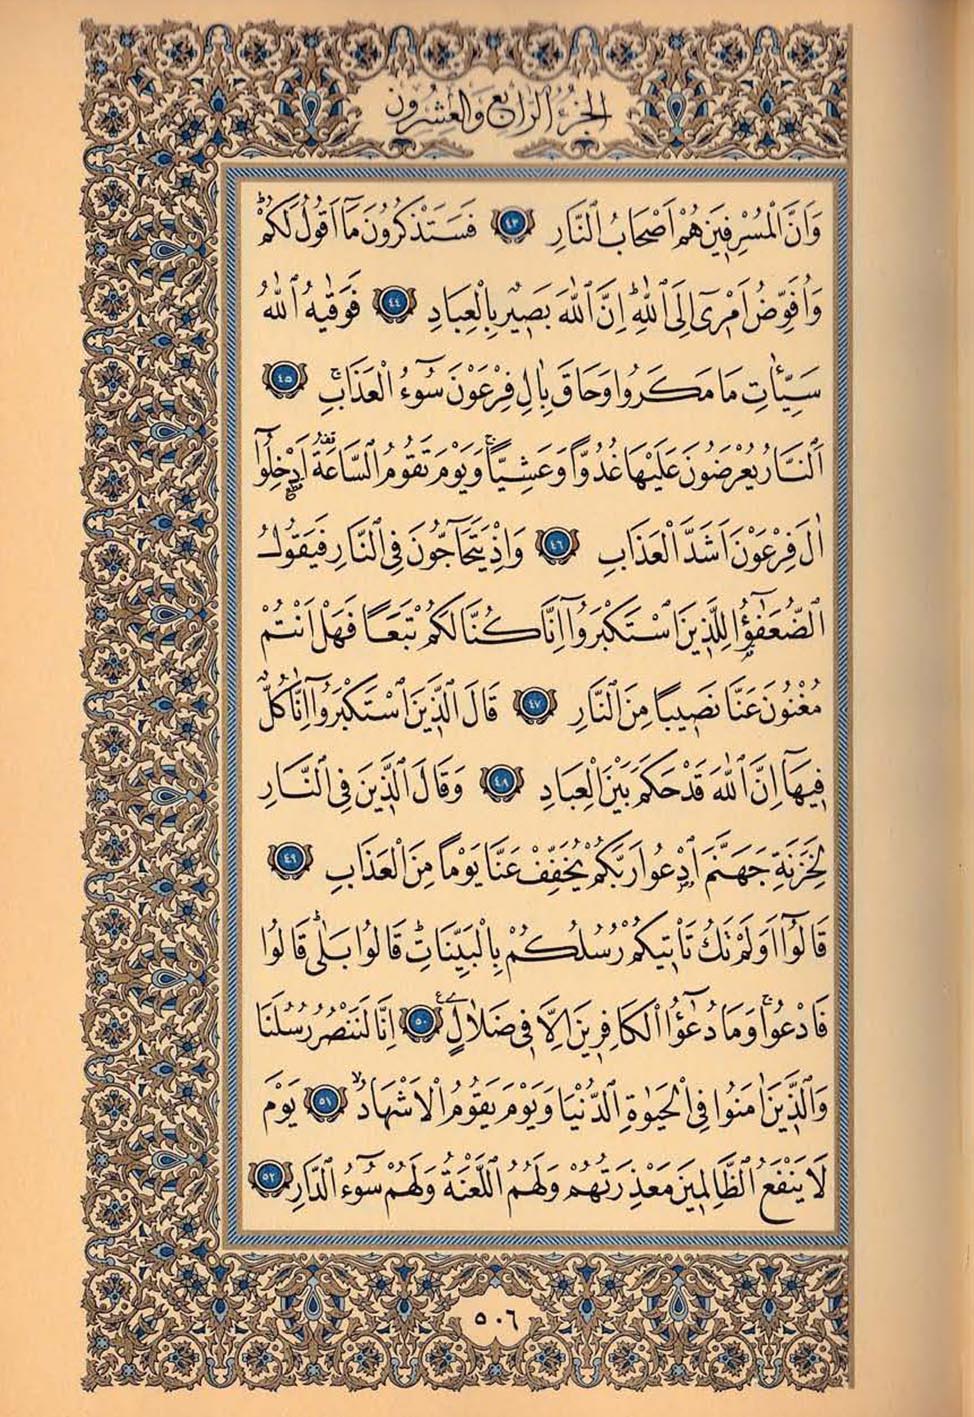 الجزء الرابع والعشرون
وَاَنَّ الْمُسْرِفٖينَ هُمْ اَصْحَابُ النَّارِ ٤٣ فَسَتَذْكُرُونَ مَٓا اَقُولُ لَكُمْؕ
وَاُفَوِّضُ اَمْرٖٓى اِلَى اللّٰهِؕ اِنَّ اللّٰهَ بَصٖيرٌ بِالْعِبَادِ ٤٤ فَوَقٰيهُ اللّٰهُ
سَيِّـَٔاتِ مَا مَكَرُوا وَحَاقَ بِاٰلِ فِرْعَوْنَ سُٓوءُ الْعَذَابِۚ ٤٥
اَلنَّارُ يُعْرَضُونَ عَلَيْهَا غُدُوًّا وَعَشِيًّاۚ وَيَوْمَ تَقُومُ السَّاعَةُ اَدْخِلُٓوا
اٰلَ فِرْعَوْنَ اَشَدَّ الْعَذَابِ ٤٦ وَاِذْ يَتَحَٓاجُّونَ فِى النَّارِ فَيَقُولُ
الضُّعَفٰٓؤُ۬ا لِلَّذٖينَ اسْتَكْبَرُٓوا اِنَّا كُنَّا لَكُمْ تَبَعًا فَهَلْ اَنْتُمْ
مُغْنُونَ عَنَّا نَصٖيبًا مِنَ النَّارِ ٤٧ قَالَ الَّذٖينَ اسْتَكْبَرُٓوا اِنَّا كُلٌّ
فٖيهَٓا اِنَّ اللّٰهَ قَدْ حَكَمَ بَيْنَ الْعِبَادِ ٤٨ وَقَالَ الَّذٖينَ فِى النَّارِ
لِخَزَنَةِ جَهَنَّمَ ادْعُوا رَبَّكُمْ يُخَفِّفْ عَنَّا يَوْمًا مِنَ الْعَذَابِ ٤٩
قَالُٓوا اَوَلَمْ تَكُ تَاْتٖيكُمْ رُسُلُكُمْ بِالْبَيِّنَاتِؕ قَالُوا بَلٰىؕ قَالُوا
فَادْعُواۚ وَمَا دُعٰٓؤُا الْكَافِرٖينَ اِلَّا فٖى ضَلَالٍ ٥٠ اِنَّا لَنَنْصُرُ رُسُلَنَا
وَالَّذٖينَ اٰمَنُوا فِى الْحَيٰوةِ الدُّنْيَا وَيَوْمَ يَقُومُ الْاَشْهَادُۙ ٥١ يَوْمَ
لَا يَنْفَعُ الظَّالِمٖينَ مَعْذِرَتُهُمْ وَلَهُمُ اللَّعْنَةُ وَلَهُمْ سُٓوءُ الدَّارِ ٥٢
٥٠٦